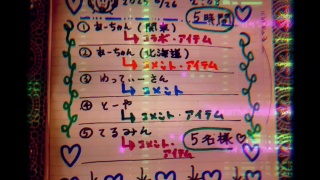 5時間
① おーちゃん(関東)
コラボ・アイテム
② おーちゃん(北海道)
コメント・アイテム
③ ゆってぃーさん
コメント
④ とーや
コメント・アイテム
⑤ てるみん
コメント・
アイテム
5名様